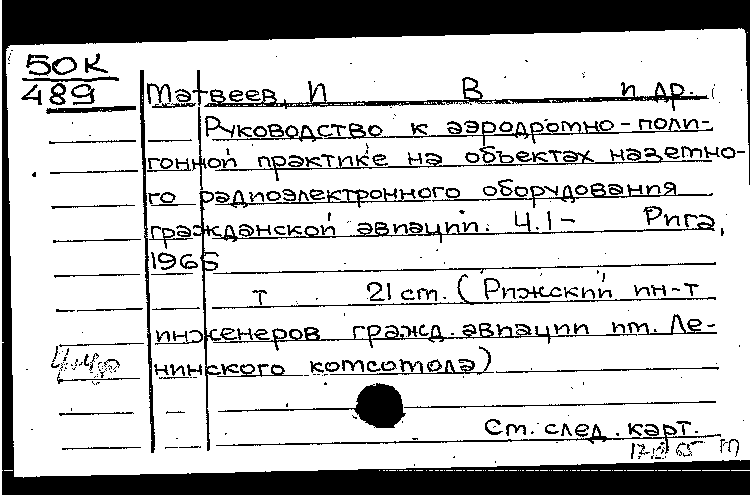 50К
489
Матвеев, И В и др.
Руководство к аэродромно-поли-
гонной практике на объектах наземно-
го радиоэлектронного оборудования
гражданской авиации. Ч.1- Рига,
1965
т 21 см. (Рижский ин-т
инженеров гражд. авиации им. Ле-
нинского комсомола)
См. след. карт.